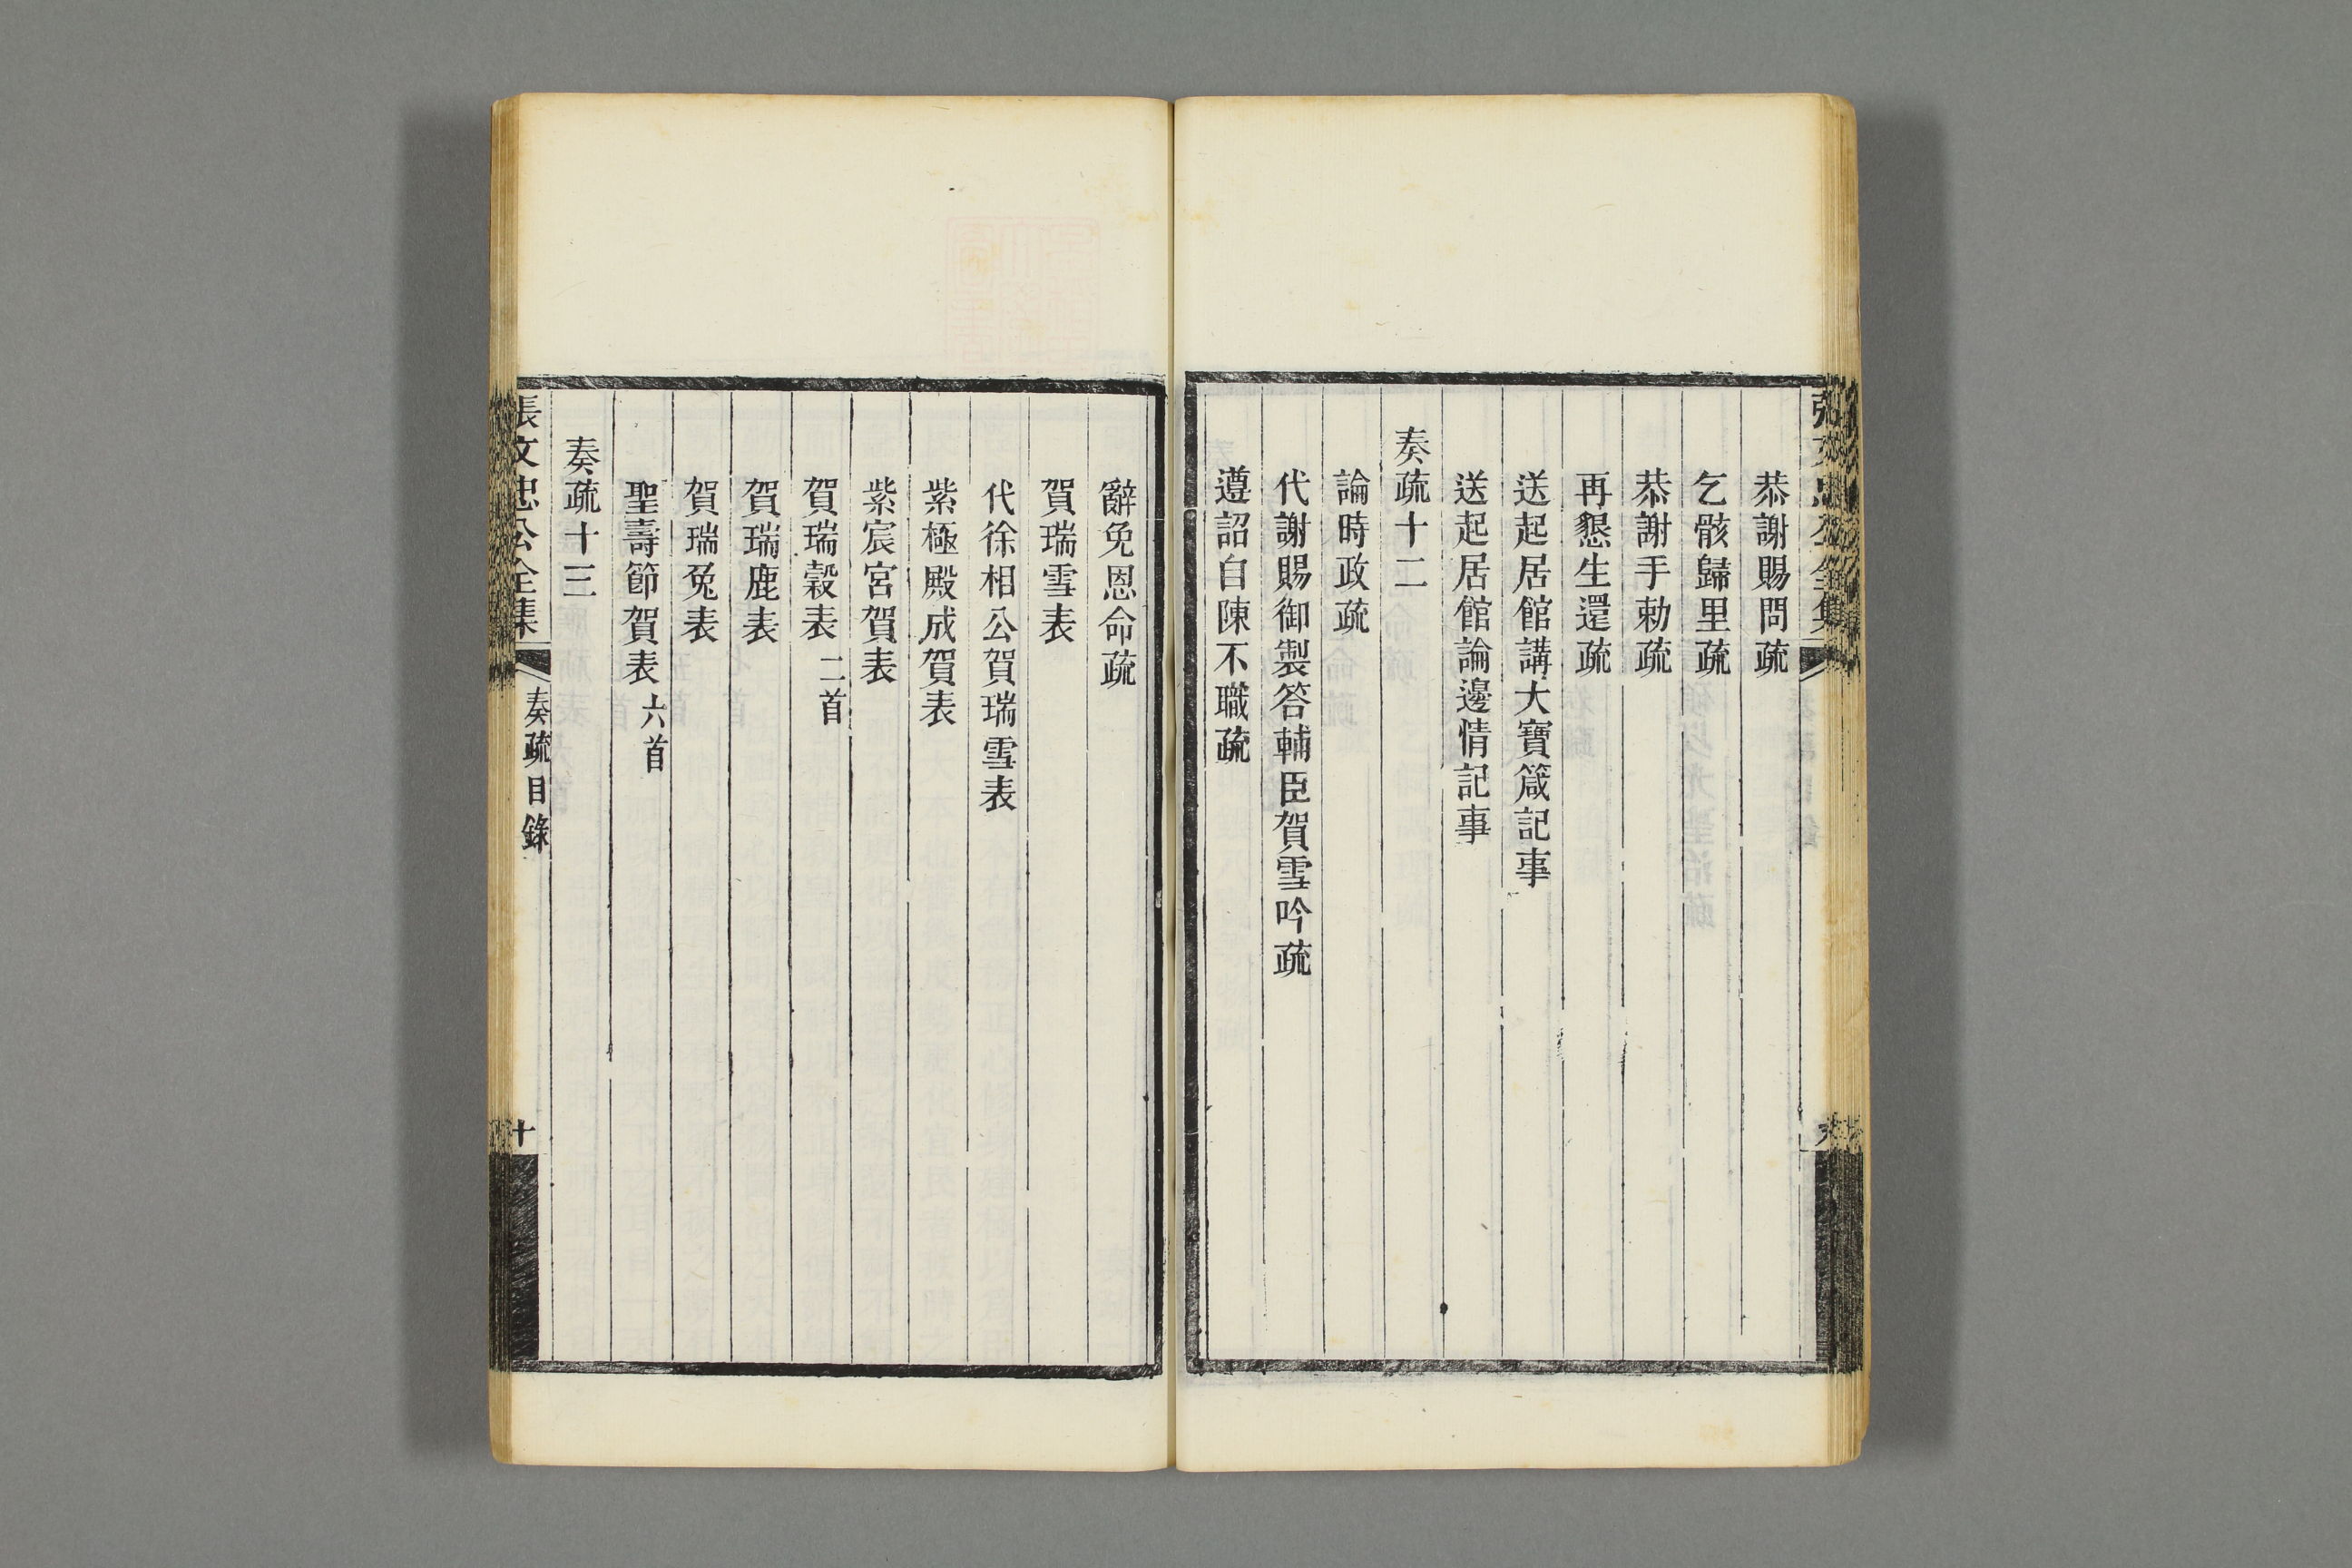 恭謝賜問疏
乞骸歸里疏
恭謝手勅疏
再懇生還疏
送起居館講大寶箴記事
送起居館論邊情記事
奏疏十二
論時政疏
代謝賜御製答輔臣賀雪吟疏
遵詔自陳不職疏
辭免恩命疏
賀瑞雪表
代徐相公賀瑞雪表
紫極殿成賀表
紫宸宮賀表
賀瑞穀表 二首
賀瑞鹿表
賀瑞兔表
聖壽節賀表 六首
奏疏十三
張文忠公全集 奏疏目錄 十